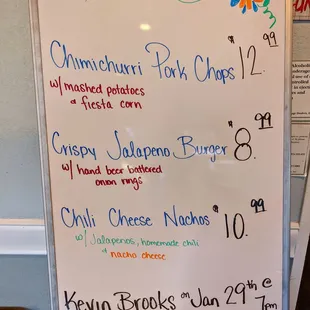 Chimichurri Pork Chops $12.99
w/ mashed potatoes
& fiesta corn
Crispy Jalapeno Burger $8.99
w/ hand beer battered
onion rings
Chili Cheese Nachos $10.99
w/ Jalapenos, homemade chili
& nacho cheese
Kevin Brooks on Jan 29th @
7pm